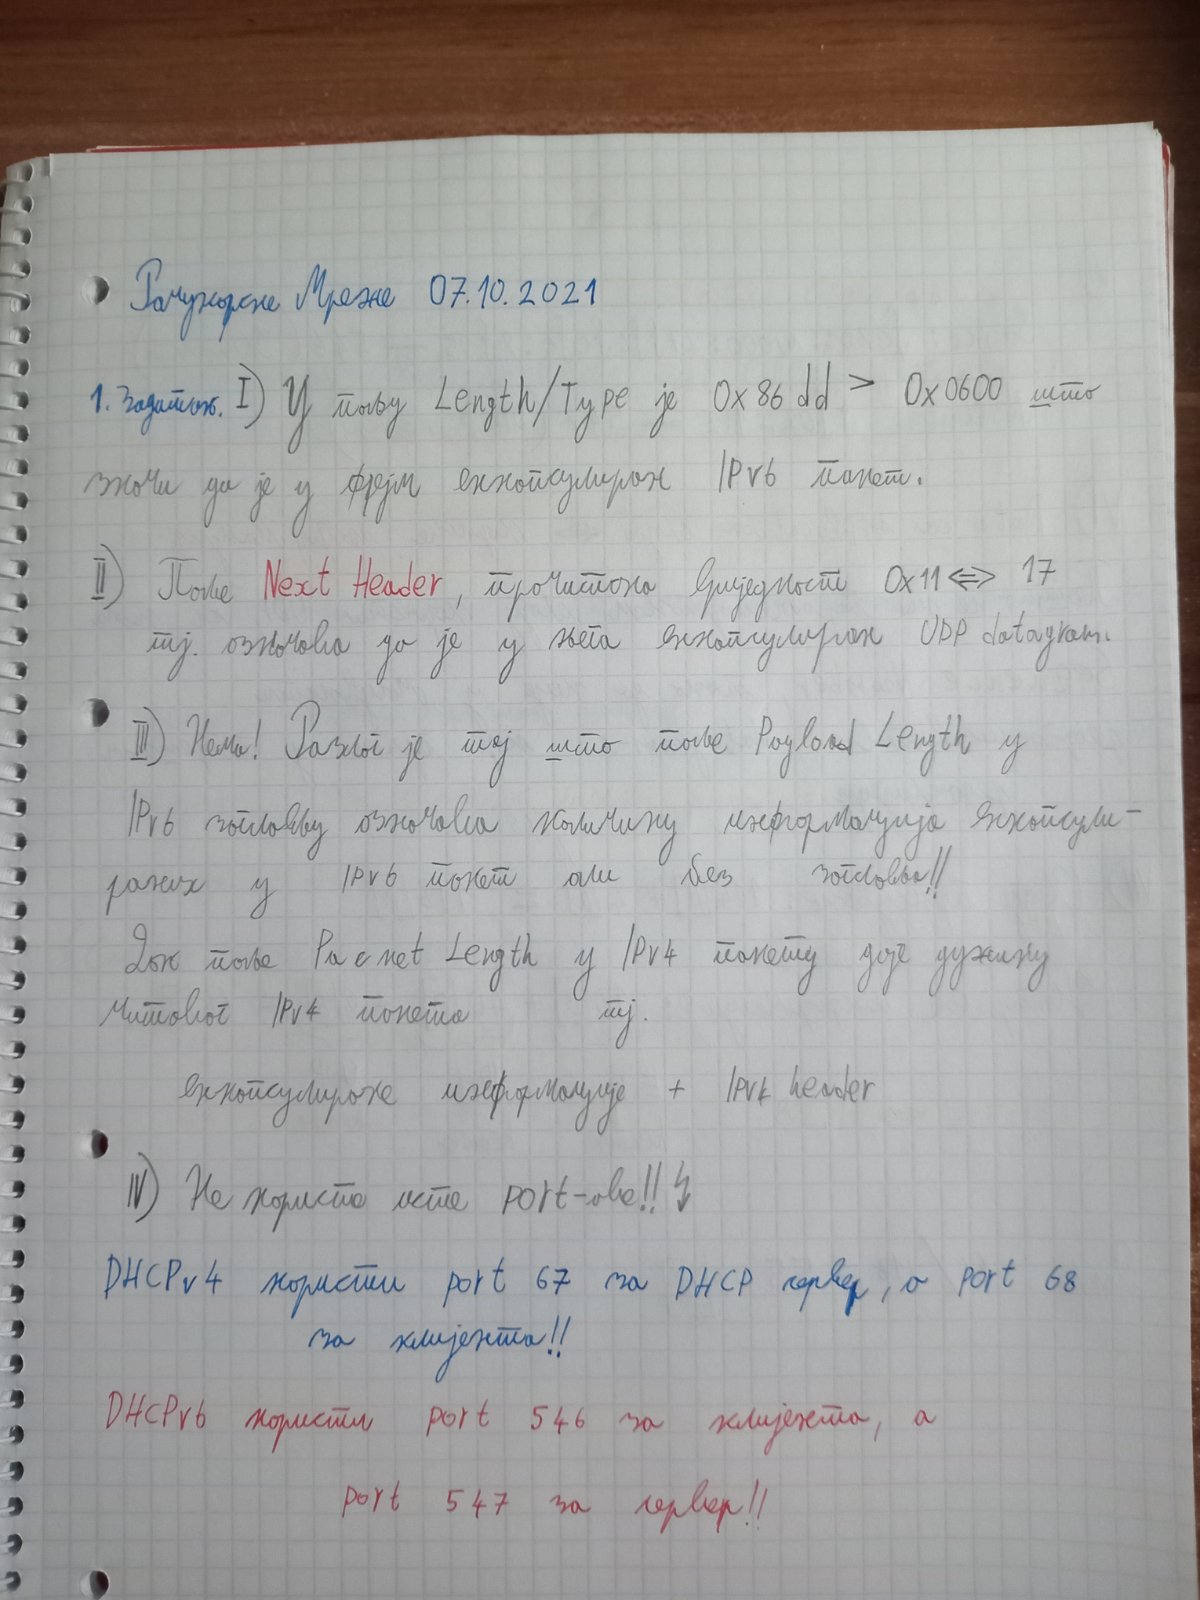 Рачунарске Мреже 07.10.2021
1. Задатак. I) У пољу Length/Type је 0x86dd > 0x0600 што
значи да је у фрејм енкапсулиран IPv6 пакет.
II) Поље Next Header, прочитана вриједност 0x11 <=> 17
тј. означава да је у њега енкапсулиран UDP datagram.
III) Нема! Разлог је тај што поље Payload Length у
IPv6 заглављу означава количину информација енкапсули-
раних у IPv6 пакет али без заглавља!!
Док поље Pacнet Length у IPv4 пакету даје дужину
читавог IPv4 пакета тј.
енкапсулиране информације + IPv4 header
IV) Не користе исте port-ове!!
DHCPv4 користи port 67 за DHCP сервер, а port 68
за клијента!!
DHCPv6 користи port 546 за клијента, а
port 547 за сервер!!